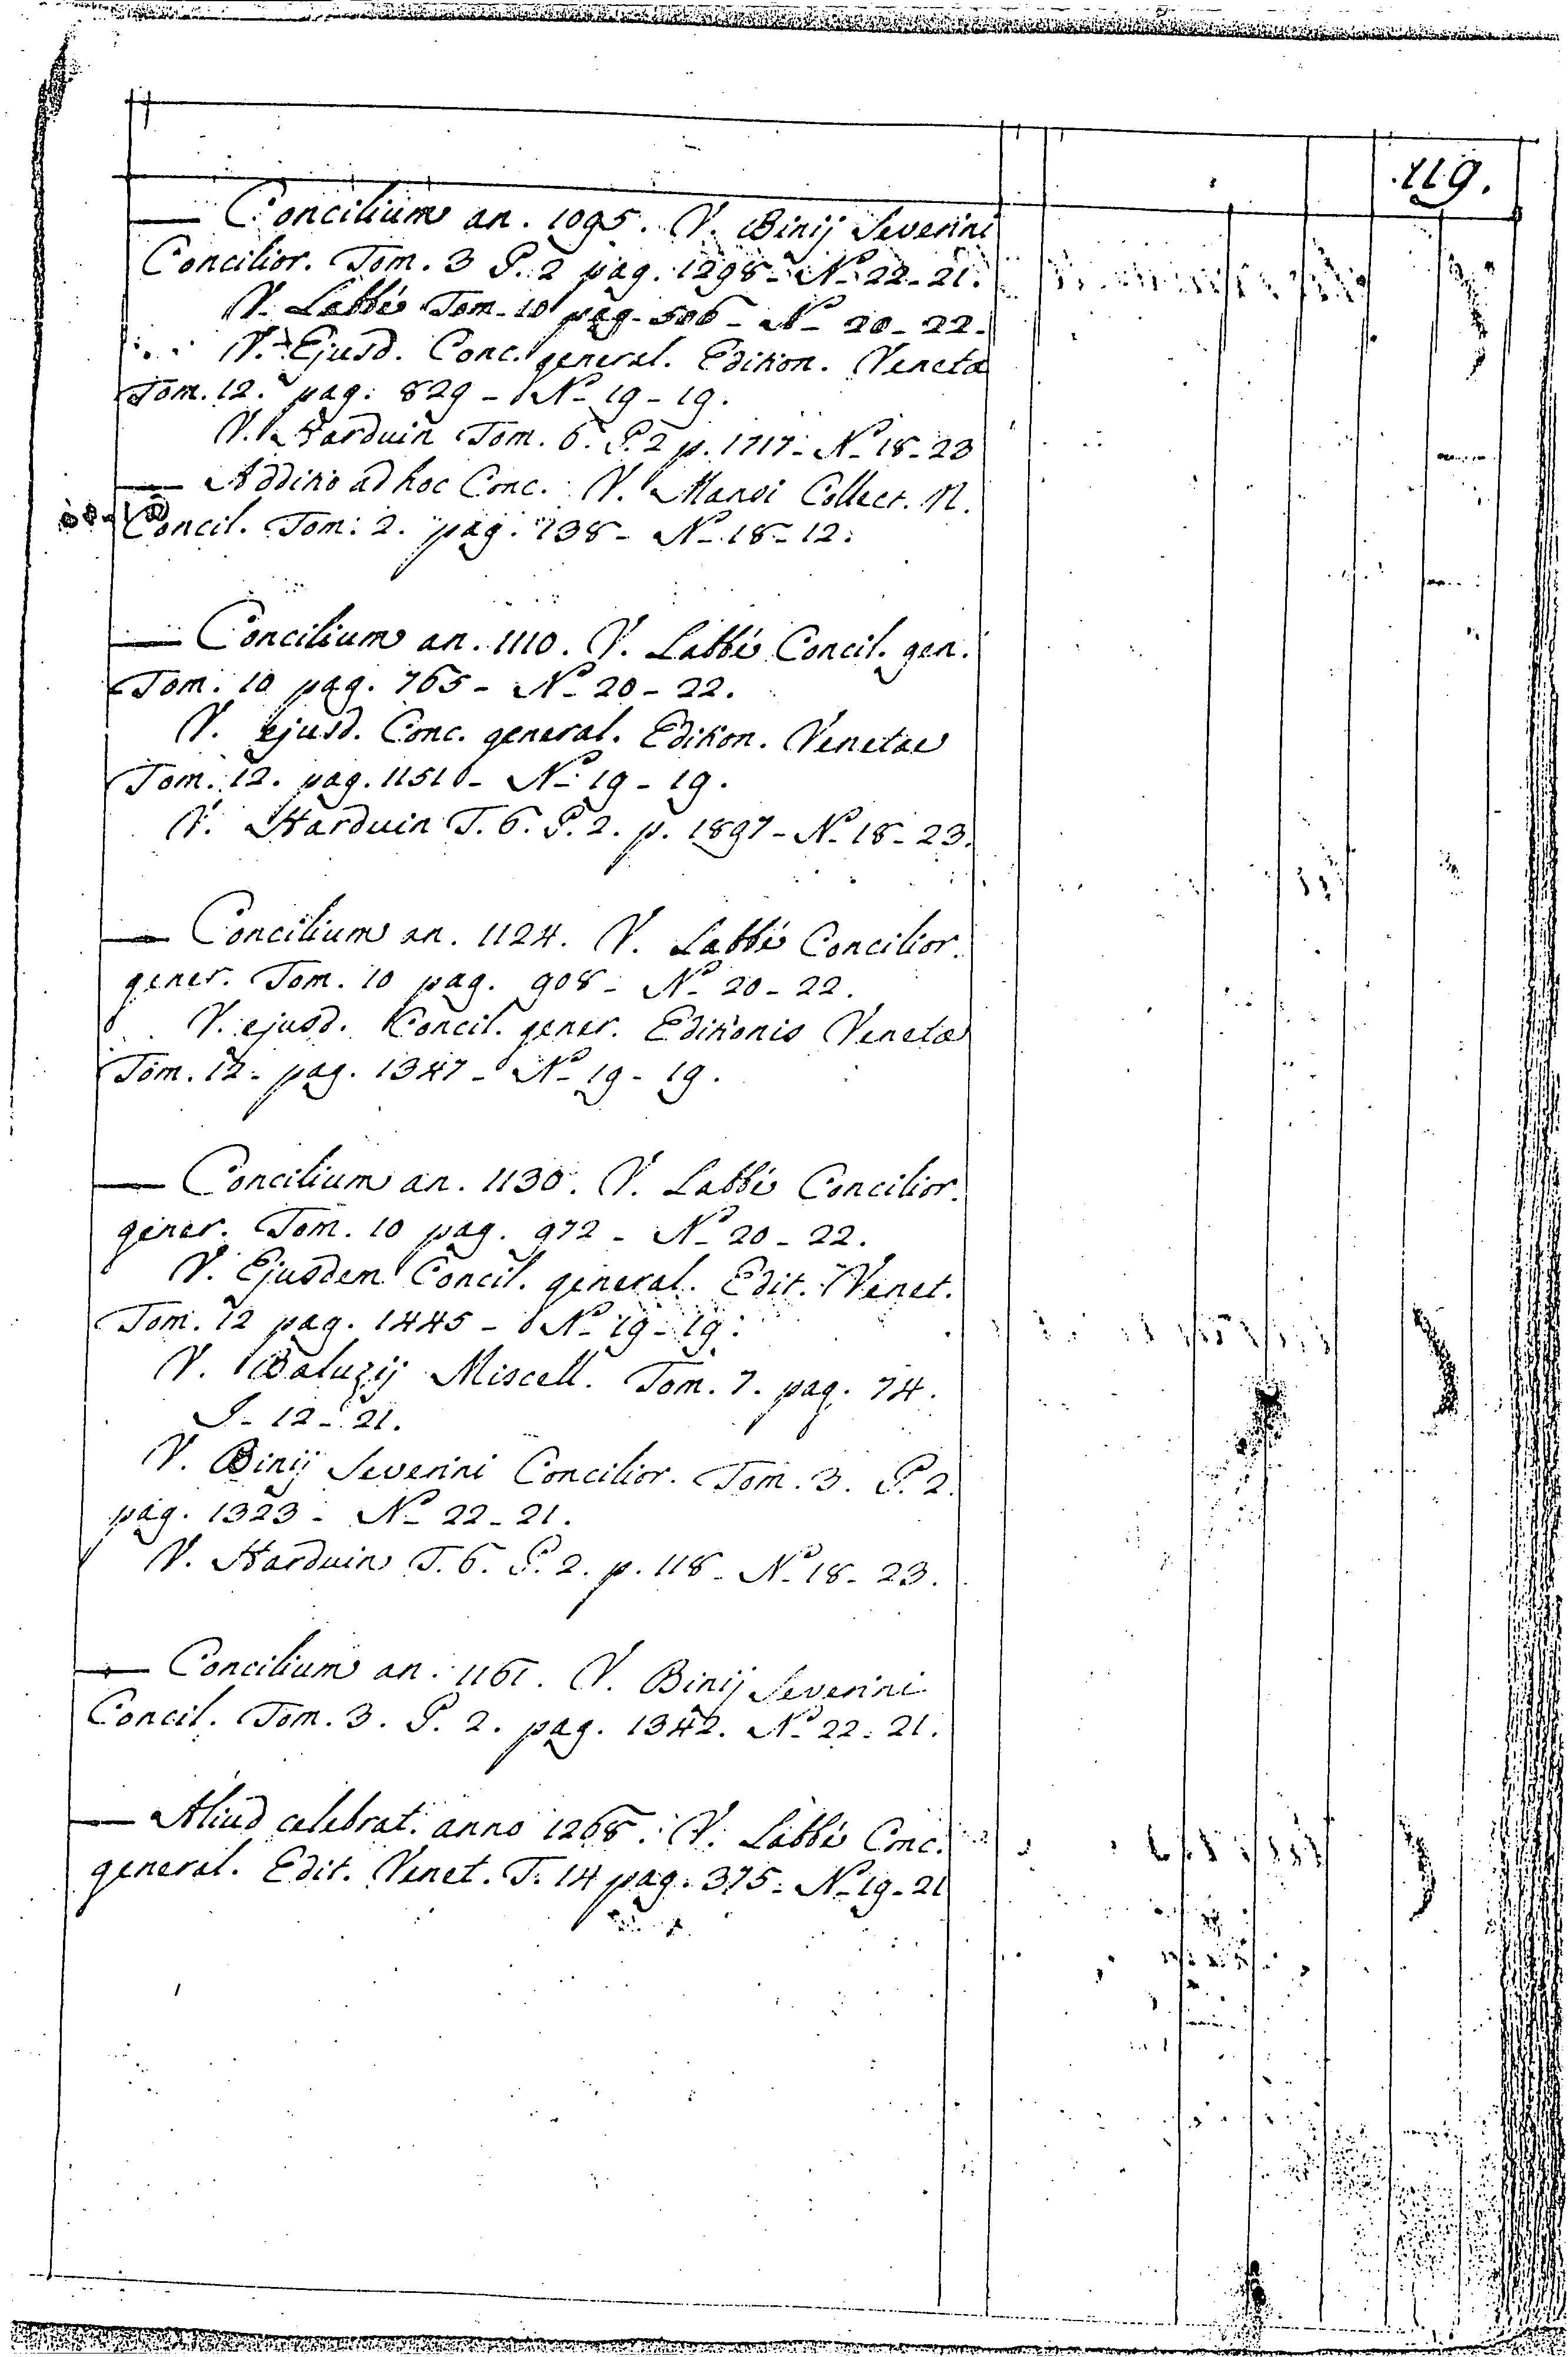 119.
— Concilium an. 1095. V. Binij Severini
Concilior. Tom. 3 P. 2 pag. 1298 - Nº 22 - 21.
V. Labbé Tom. 10 pag. 506 - Nº 20 - 22.
V. Ejusd. Conc. general. Edition. Venetæ
Tom. 12. pag. 829 - Nº 19 - 19.
V. Harduin Tom. 6. P. 2 p. 1717 - Nº 18 - 23
— Additio ad hoc Conc. V. Mansi Collect. N.
Concil. Tom. 2. pag. 138 - Nº 18 - 12.
— Concilium an. 1110. V. Labbé Concil. gen.
Tom. 10 pag. 765 - Nº 20 - 22.
V. ejusd. Conc. general. Edition. Venetae
Tom. 12. pag. 1151 - Nº 19 - 19.
V. Harduin T. 6. P. 2. p. 1897 - Nº 18 - 23.
— Concilium an. 1124. V. Labbé Concilior.
gener. Tom. 10 pag. 908 - Nº 20 - 22.
V. ejusd. Concil. gener. Editionis Venetæ
Tom. 12 - pag. 1347 - Nº 19 - 19.
— Concilium an. 1130. V. Labbé Concilior.
gener. Tom. 10 pag. 972 - Nº 20 - 22.
V. Ejusdem Concil. general. Edit. Venet.
Tom. 12 pag. 1445 - Nº 19 - 19.
V. Baluzij Miscell. Tom. 7. pag. 74.
J - 12 - 21.
V. Binij Severini Concilior. Tom. 3. P. 2.
pag. 1323 - Nº 22 - 21.
V. Harduin T. 6. P. 2. p. 118 - Nº 18 - 23.
— Concilium an. 1161. V. Binij Severini
Concil. Tom. 3. P. 2. pag. 1342. Nº 22 - 21.
— Aliud celebrat. anno 1268. V. Labbé Conc.
general. Edit. Venet. T. 14 pag. 375 - Nº 19 - 21